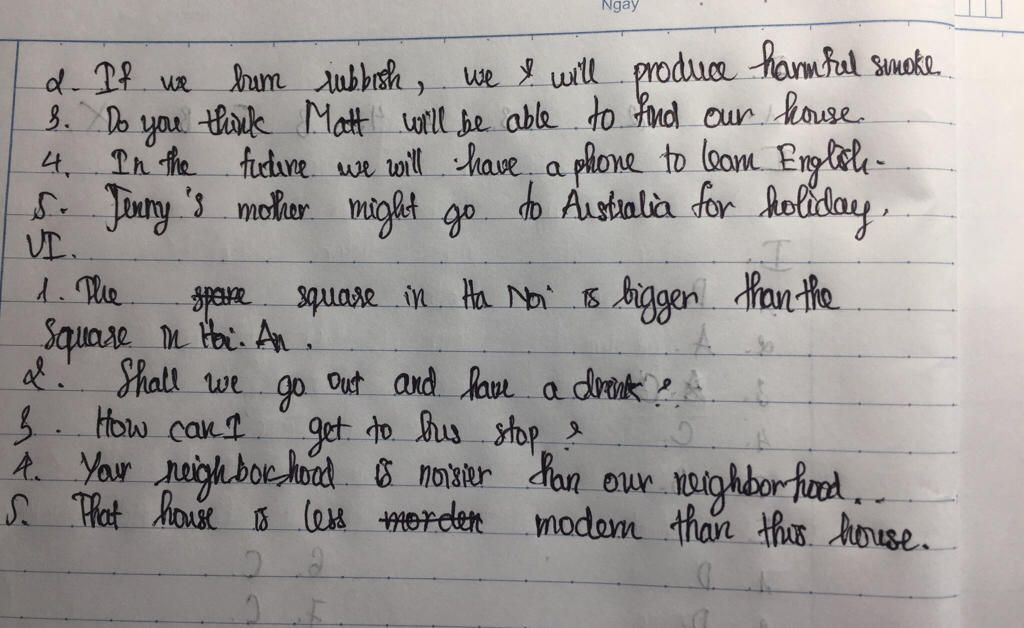 Ngày
2. If we burn rubbish, we will produce harmful smoke.
3. Do you think Matt will be able to find our house.
4. In the future we will have a phone to learn English.
5. Jenny's mother might go to Australia for holiday.
VI.
1. The square in Ha Noi is bigger than the
square in Hoi An.
2. Shall we go out and have a drink?
3. How can I get to bus stop?
4. Your neighborhood is noisier than our neighborhood..
5. That house is less morden modern than this house.